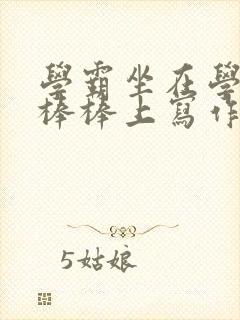 學霸坐在學
棒棒上寫作
5姑娘